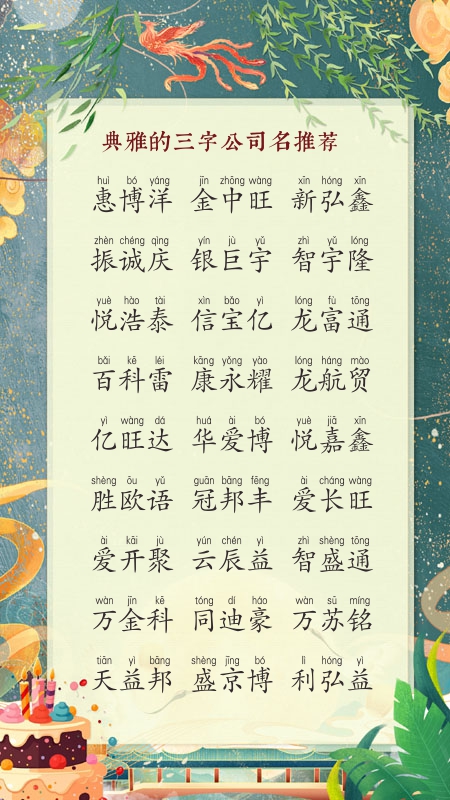 典雅的三字公司名推荐
huì bó yáng jīn zhōng wàng xīn hóng xīn
惠博洋 金中旺 新弘鑫
zhèn chéng qìng yín jù yǔ zhì yǔ lóng
振诚庆 银巨宇 智宇隆
yuè hào tài xìn bǎo yì lóng fù tōng
悦浩泰 信宝亿 龙富通
bǎi kē léi kāng yǒng yào lóng háng mào
百科雷 康永耀 龙航贸
yì wàng dá huá ài bó yuè jiā xīn
亿旺达 华爱博 悦嘉鑫
shèng ōu yǔ guān bāng fēng ài cháng wàng
胜欧语 冠邦丰 爱长旺
ài kāi jù yún chén yì zhì shèng tōng
爱开聚 云辰益 智盛通
wàn jīn kē tóng dí háo wàn sū míng
万金科 同迪豪 万苏铭
tiān yì bāng shèng jīng bó lì hóng yì
天益邦 盛京博 利弘益